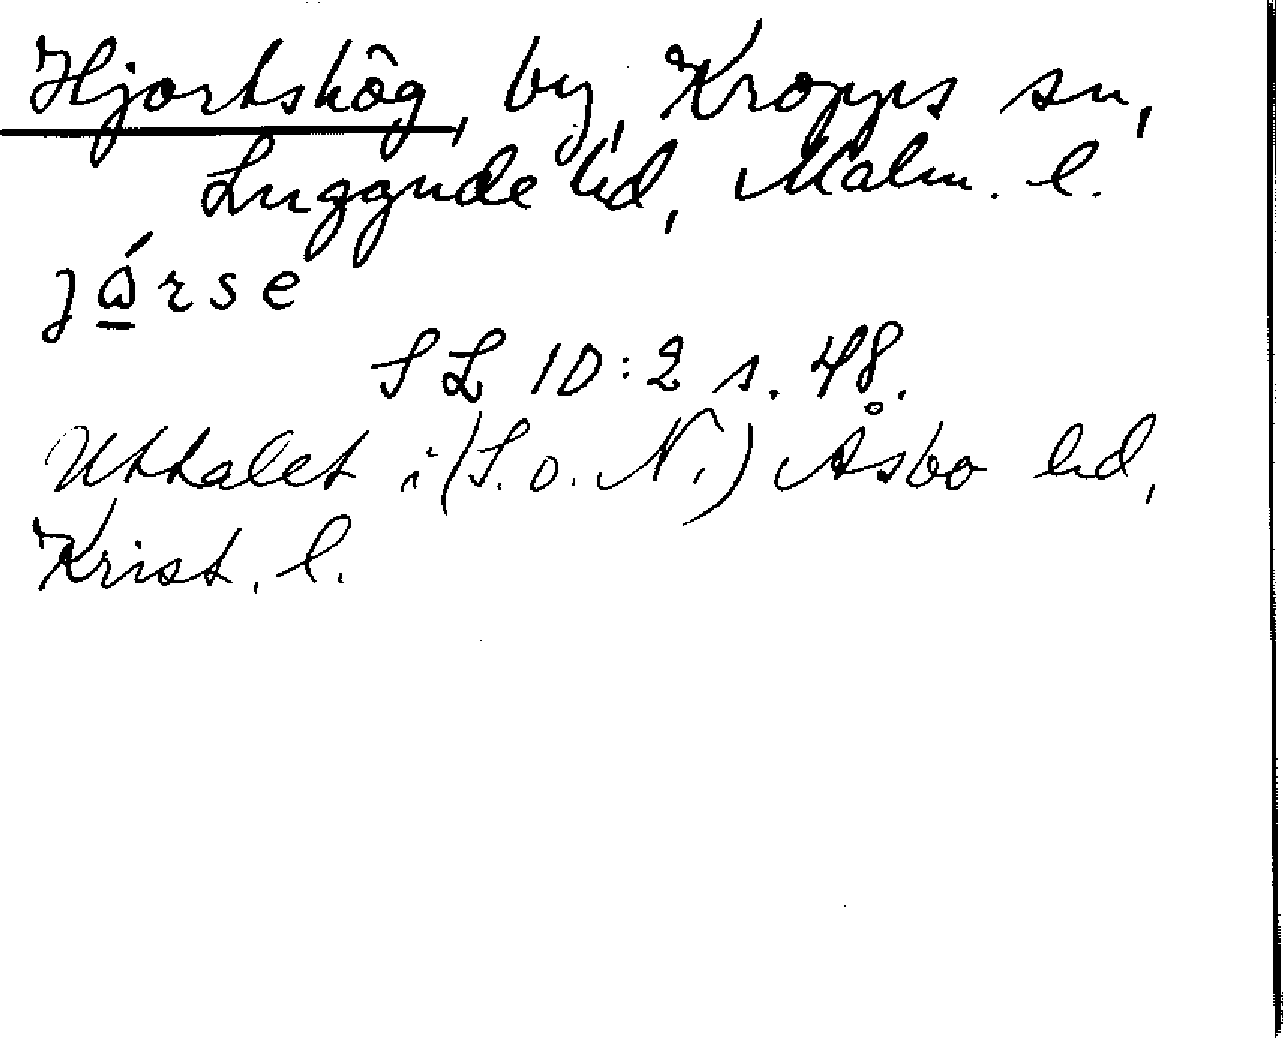 Hjortshög, by, Kropps sn,
Luggude hd, Malm. l.
jǻrse
SL 10:2 s. 48.
Uttalet i (S. o. N.) Åsbo hd,
Krist. l.